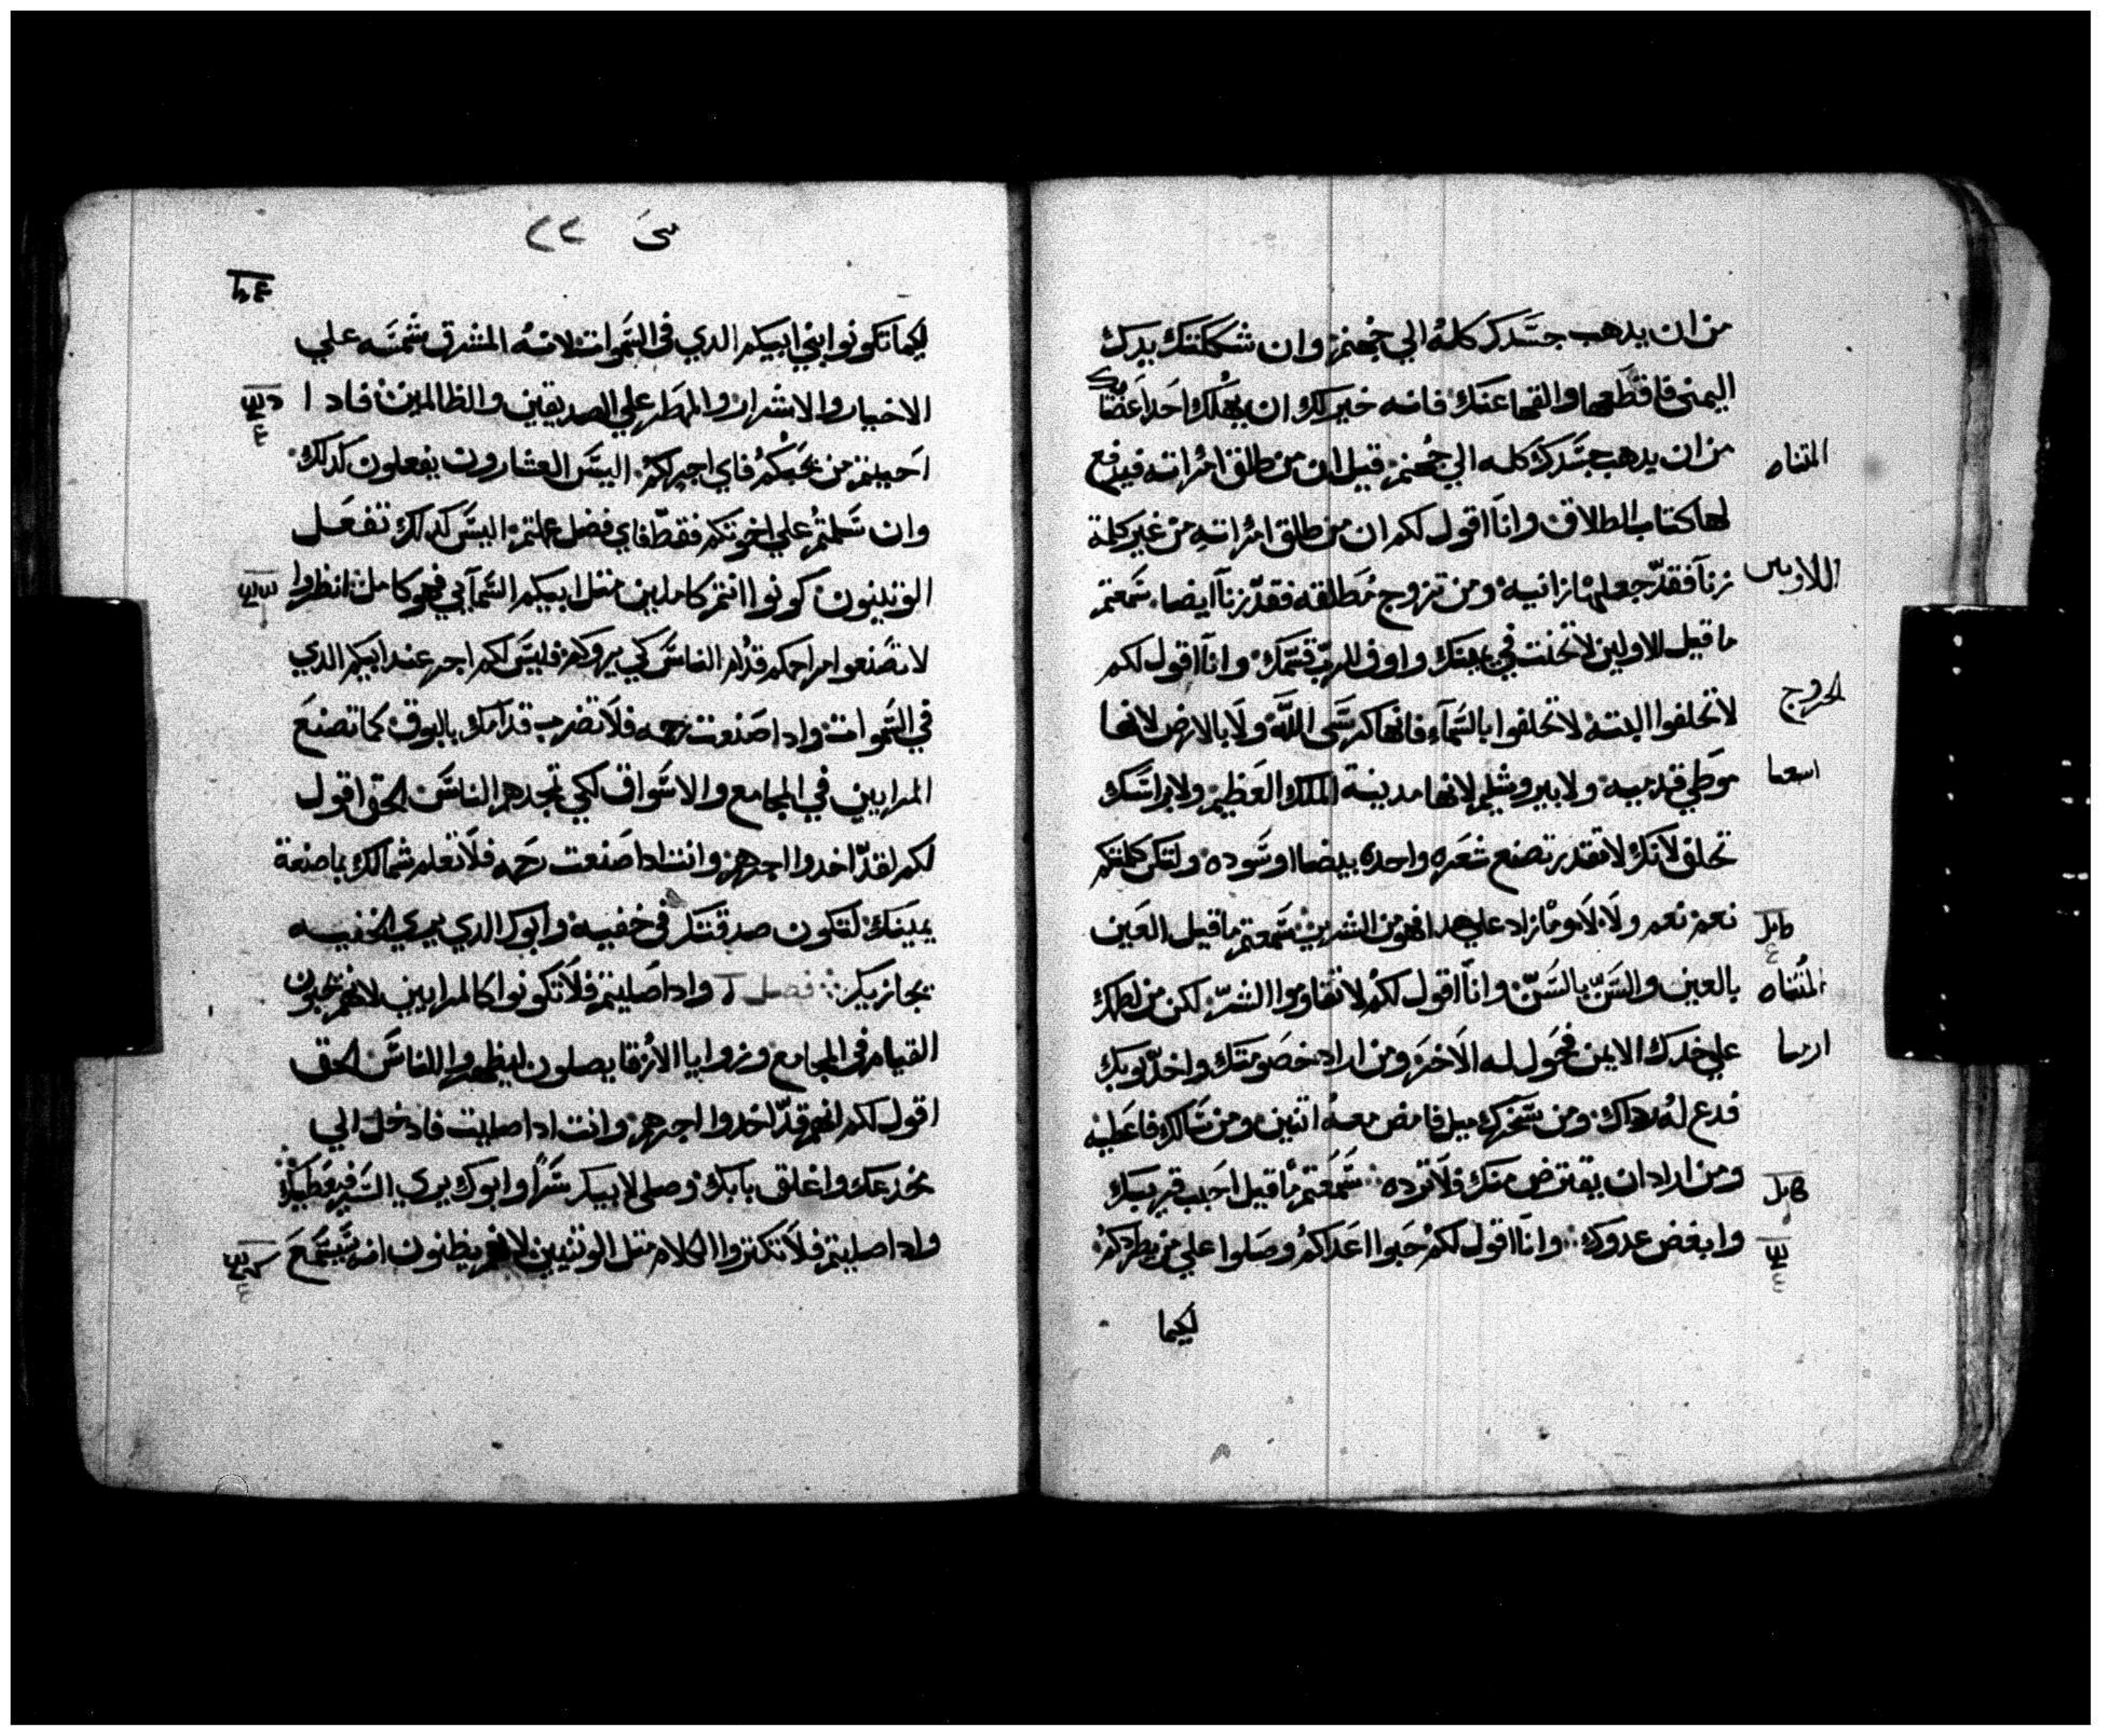 من ان يدهب جسدك كله الي جهنم وان شككتك يدك
اليمني فاقطعها والقها عنك فانه خير لك ان يهلك احد اعضايك
من ان يدهب جسدك كله الي جهنم قيل ان من طلق امراته فيدفع
المتناه
لها كتاب الطلاق وانا اقول لكم ان من طلق امراته من غير كلمة
زنا فقد جعلها زانيه ومن تزوج مطلقه فقد زنا ايضا سمعتم
اللاويين
ما قيل للاولين لا تحنث في يمينك واوف للرب قسمك وانا اقول لكم
لا تحلفوا البته لا تحلفوا بالسماء فانها كرسي الله ولا بالارض لانها
الخروج
موطي قدميه ولا بيروشليم لانها مدينة الملك العظيم ولا براسك
اسعيا
تحلف لانك لا تقدر تصنع شعره واحده بيضا او سوده ولتكن كلمتكم
نعم نعم ولا لا وما زاد علي هدا فهو من الشرير سمعتم ما قيل العين
بالعين والسن بالسن وانا اقول لكم لا تقاوموا الشر لكن من لطمك
المثناه
علي خدك الايمن فحول له الاخر ومن اراد خصومتك واخد توبك
ارميا
فدع له رداك ومن سخرك ميل فامض معه اتنين ومن سالك فاعطيه
ومن اراد ان يقترض منك فلا ترده سمعتم ما قيل احبب قريبك
وابغض عدوك وانا اقول لكم حبوا اعداكم وصلوا علي من يطردكم
لكيما
٢٢
لكيما تكونوا بني ابيكم الدي في السموات لانه المشرق شمسه علي
الاخيار والاشرار والمطر علي الصديقين والظالمين فادا
احببتم من يحبكم فاي اجر لكم اليس العشارون يفعلون كدلك
وان سلمتم علي اخوتكم فقط فاي فضل عملتم اليس كدلك تفعل
الوتنيون كونوا انتم كاملين متل ابيكم السمآيي فهو كامل انظروا
لا تصنعوا مراحمكم قدام الناس كي يروكم فليس لكم اجر عند ابيكم الدي
في السموات وادا صنعت رحمه فلا تضرب قدامك بالبوق كما تصنع
المرايين في المجامع والاسواق لكي تمجدهم الناس الحق اقول
لكم لقد اخدوا اجرهم وانت ادا صنعت رحمه فلا تعلم شمالك بما صنعة
يمينك لتكون صدقتك في خفيه وابوك الدي يري الخفيه
يجازيك فصل وادا صليتم فلا تكونوا كالمرايين لانهم يحبون
القيام في المجامع وزوايا الازقا يصلون ليظهروا للناس الحق
اقول لكم انهم قد اخدوا اجرهم وانت ادا صليت فادخل الي
مخدعك واغلق بابك وصلي لابيك سرا وابوك يري السر فيعطيك
وادا صليتم فلا تكتروا الكلام متل الوتنيين لانهم يظنون انه يستمع